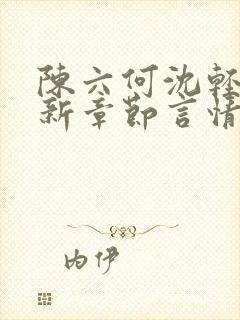 陳六何沈輕
新章節言情
内伊